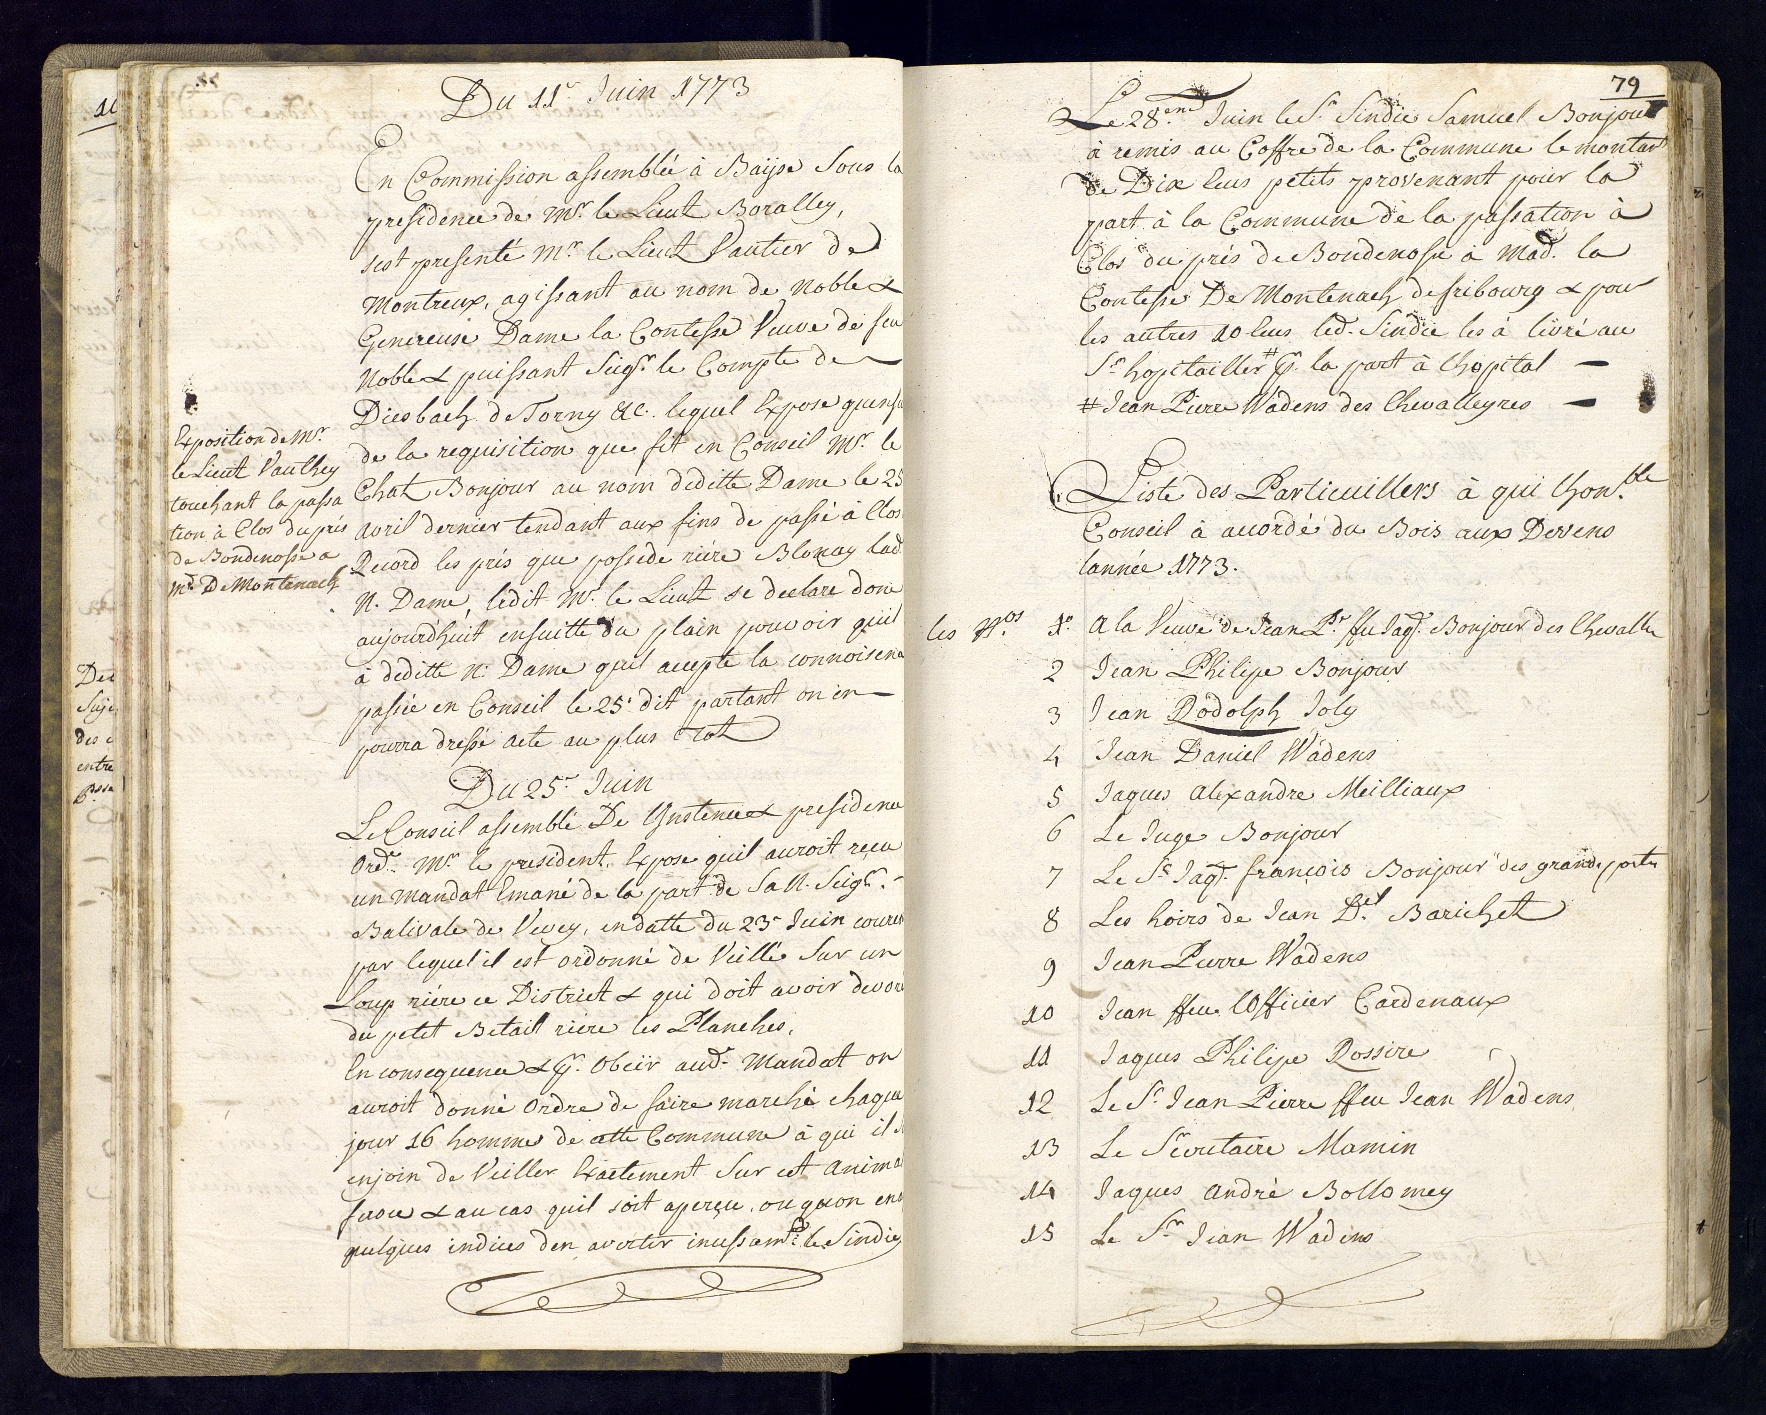 Du 11.e Juin 1773
En Commission assemblé à Baÿse Sous la
presidence de Mr. le Lieut Boralley,
sest presenté Mr. le Lieut Vautier de
Montreux, agissant au nom de Noble &
Genereuse Dame la Contesse Veuve de feu
Noble & puissant Seigr. le Compte de
Diesbach de Torny &c. lequel Expose quensu
de la requisition que fit en Conseil Mr. le
Chat Bonjour au nom deditte Dame le 25
avril dernier tendant aux fins de passé à Clos
Record les prés que possede riére Blonay lad
N. Dame, ledit Mr. le Lieut se declare donc
aujourdhuit ensuitte du plain pouvoir quil
à deditte N. Dame quil accepte la connoisena
passée en Conseil le 25.e dit partant on en
pourra dressé acte au plus tot
Exposition de Mr.
le Lieut Vauthey
touchant la passa
tion à Clos du prés
de Bondenosse a
Md. De Montenach
Du 25.e Juin
Le Conseil assemblé De Ynstence & presidence
Ordre. Mr. le president. Expose quil auroit reçu
un Mandat Emané de la part de Sa N. Seigr.
Balivale de Vevey, endatte du 23e Juin couren
par lequel il est ordonné de Veillé Sur un
Loup riére ce District & qui doit avoir devoré
du petit Betail riére les Planches,
En consequence & pr. Obeïr aud. Mandat on
auroit donné Ordre de faire marché chaque
jour 16 hommes de cette Commune à qui il
enjoin de Veiller Exactement Sur cet Anima
feroce & au cas quil soit aperçu, ou quon eno
quelques indices den avertir incessamt. le Sindic
79
Le 28.eme Juin le Sr. Sindic Samuel Bonjour
à remis au Coffre de la Commune le montan
de Dix leus petits provenant pour la
part à la Commune de la passation à
Clos du prés de Bondenosse à Mad. la
Contesse De Montenach de fribourg & pour
les autres 10 leus led. Sindic les à livré au
Sr. hopitailler # pr. la part à lhopital —
# Jean Pierre Wadens des Chevalleyres —
Liste des Particuillers à qui lhon.ble
Conseil à acordé du Bois aux Devens
lannée 1773.
les Nos. 1o A la Veuve de Jean Pr. ffu Jaq. Bonjour des Chevalle
2 Jean Philipe Bonjour
3 Jean Rodolph Joly
4 Jean Daniel Wadens
5 Jaques Alexandre Meilliaux
6 Le Juge Bonjour
7 Le Sr. Jaq. françois Bonjour des grande porte
8 Les hoirs de Jean Del. Barichet
9 Jean Pierre Wadens
10 Jean ffeu lOfficier Cardenaux
11 Jaques Philipe Rossire
12 Le Sr. Jean Pierre ffeu Jean Wadens
13 Le Sécrétaire Mamin
14 Jaques André Bollomey
15 Le Sr. Jean Wadens